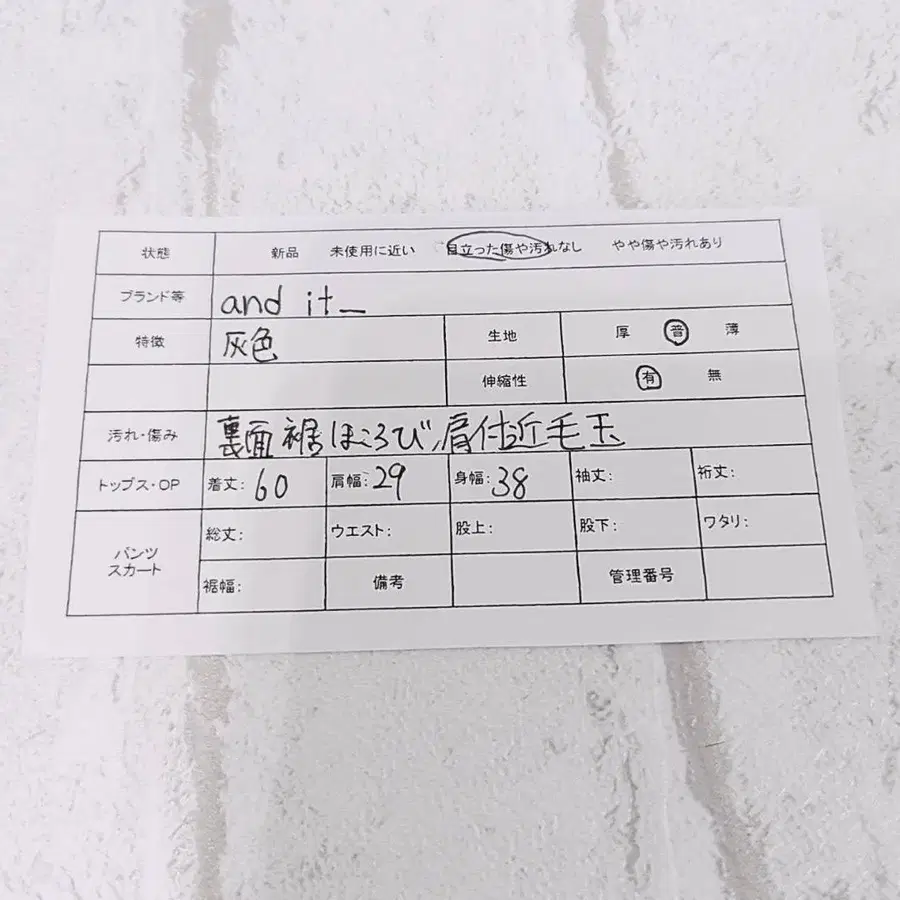 状態 新品 未使用に近い 目立った傷や汚れなし やや傷や汚れあり
ブランド等 and it_
特徴 灰色 生地 厚 普 薄
伸縮性 有 無
汚れ・傷み 裏面裾ほころび,肩付近毛玉
トップス・OP 着丈: 60 肩幅: 29 身幅: 38 袖丈: 裄丈:
パンツ スカート 総丈: ウエスト: 股上: 股下: ワタリ:
裾幅: 備考 管理番号